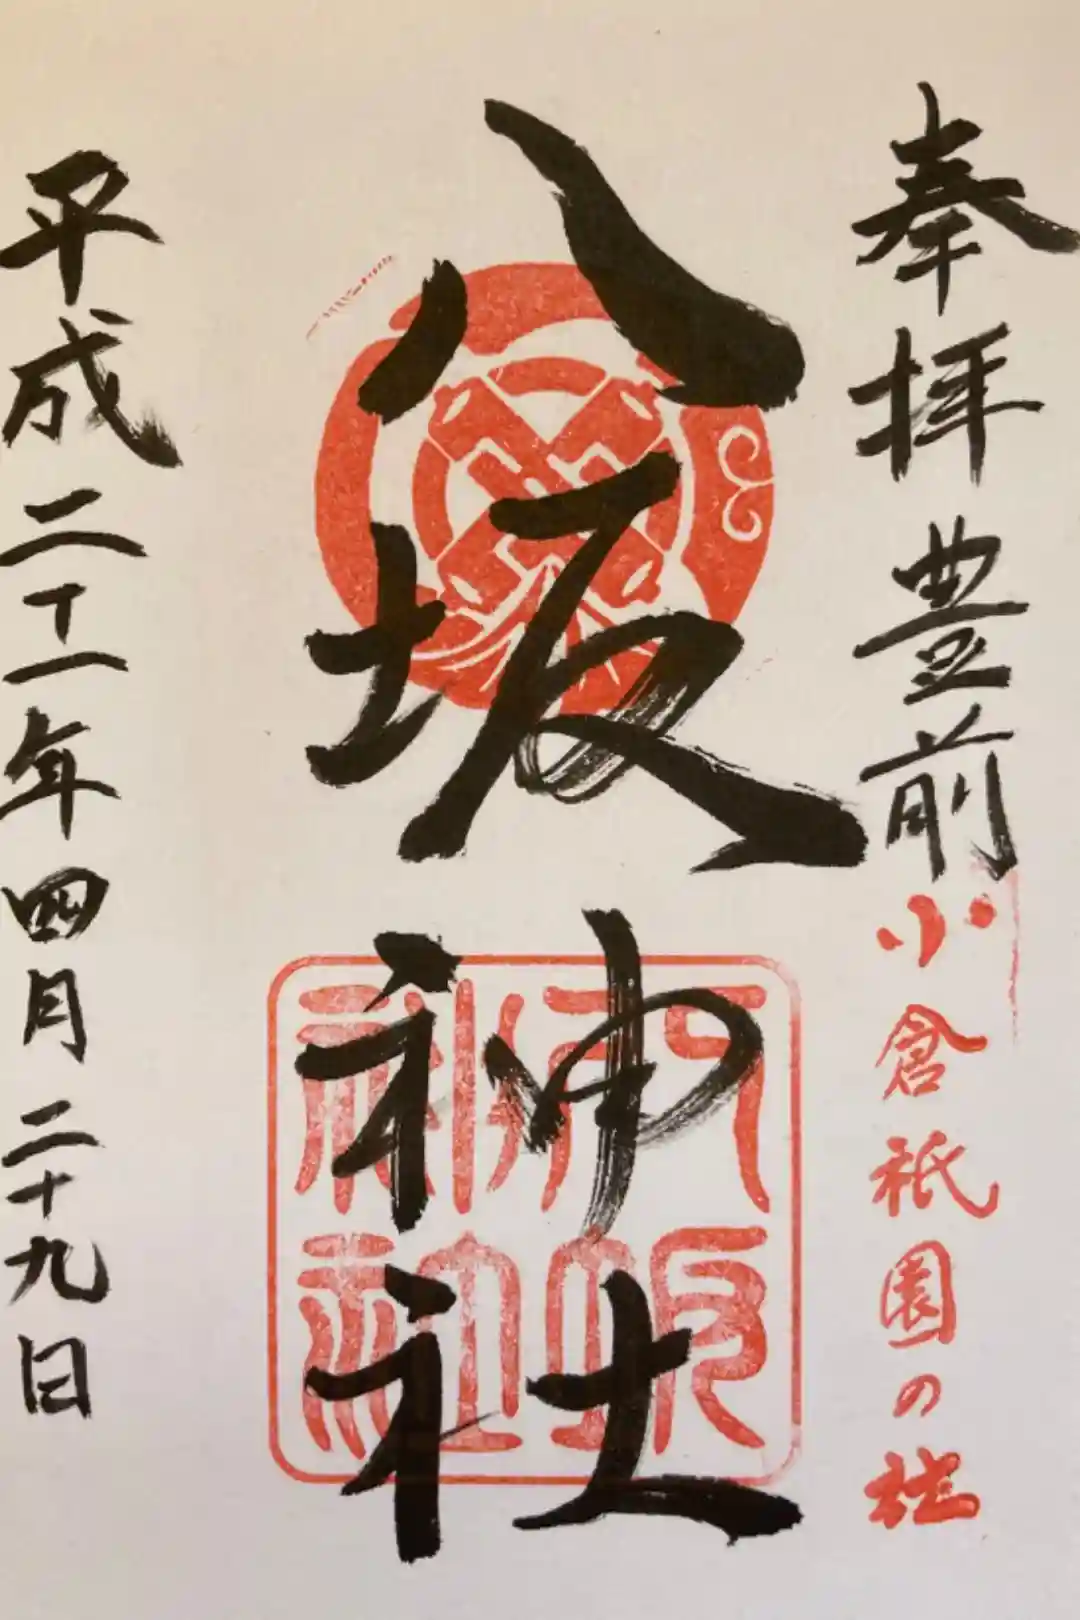 奉拝 豊前
小倉祇園の社
八坂神社
八坂神社
平成二十一年四月二十九日